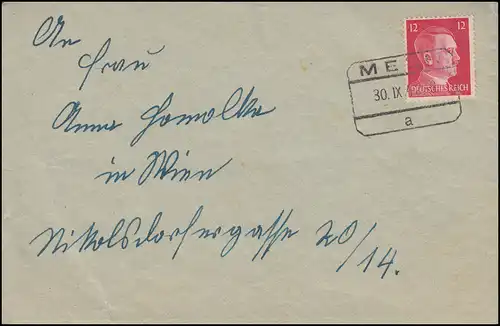 An
Frau
Anna Homolka
in Wien
Nikolsdorfergasse 20/14.
12 12
DEUTSCHES REICH
ME
30. IX.
a